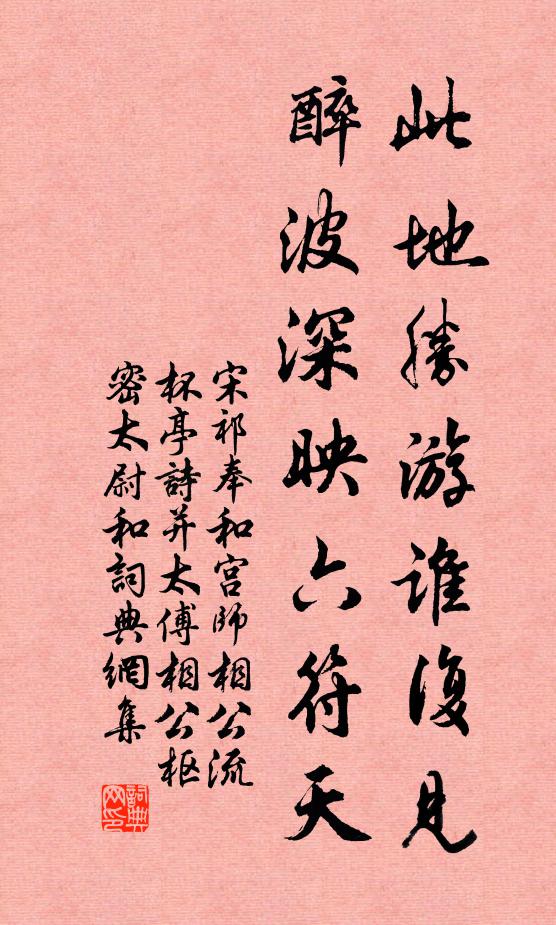 此地勝游谁復見
醉波深映六符天
宋祁奉和宫師相公流
杯亭詩并太傅相公枢
密太尉和詞典網集
詞典
网印